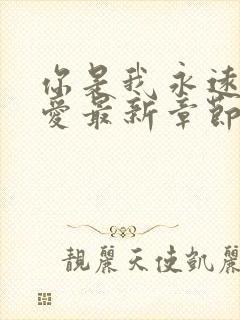 你是我永远
愛最新章節
靚麗天使凱麗